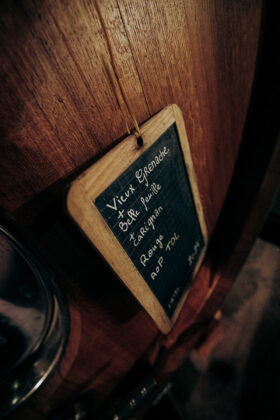 Vieux Grenache
+
Belle Feuille
+
Carignan
Rouge
AOP TDL